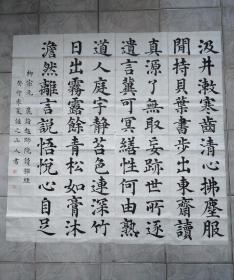 汲井漱寒齒清心拂塵服
閒持貝葉書步出東齋讀
真源了無取妄跡世所逐
遺言冀可冥繕性何由熟
道人庭宇靜苔色連深竹
日出霧露餘青松如膏沐
澹然離言說悟悅心自足
柳宗元晨詣超師院讀禪經